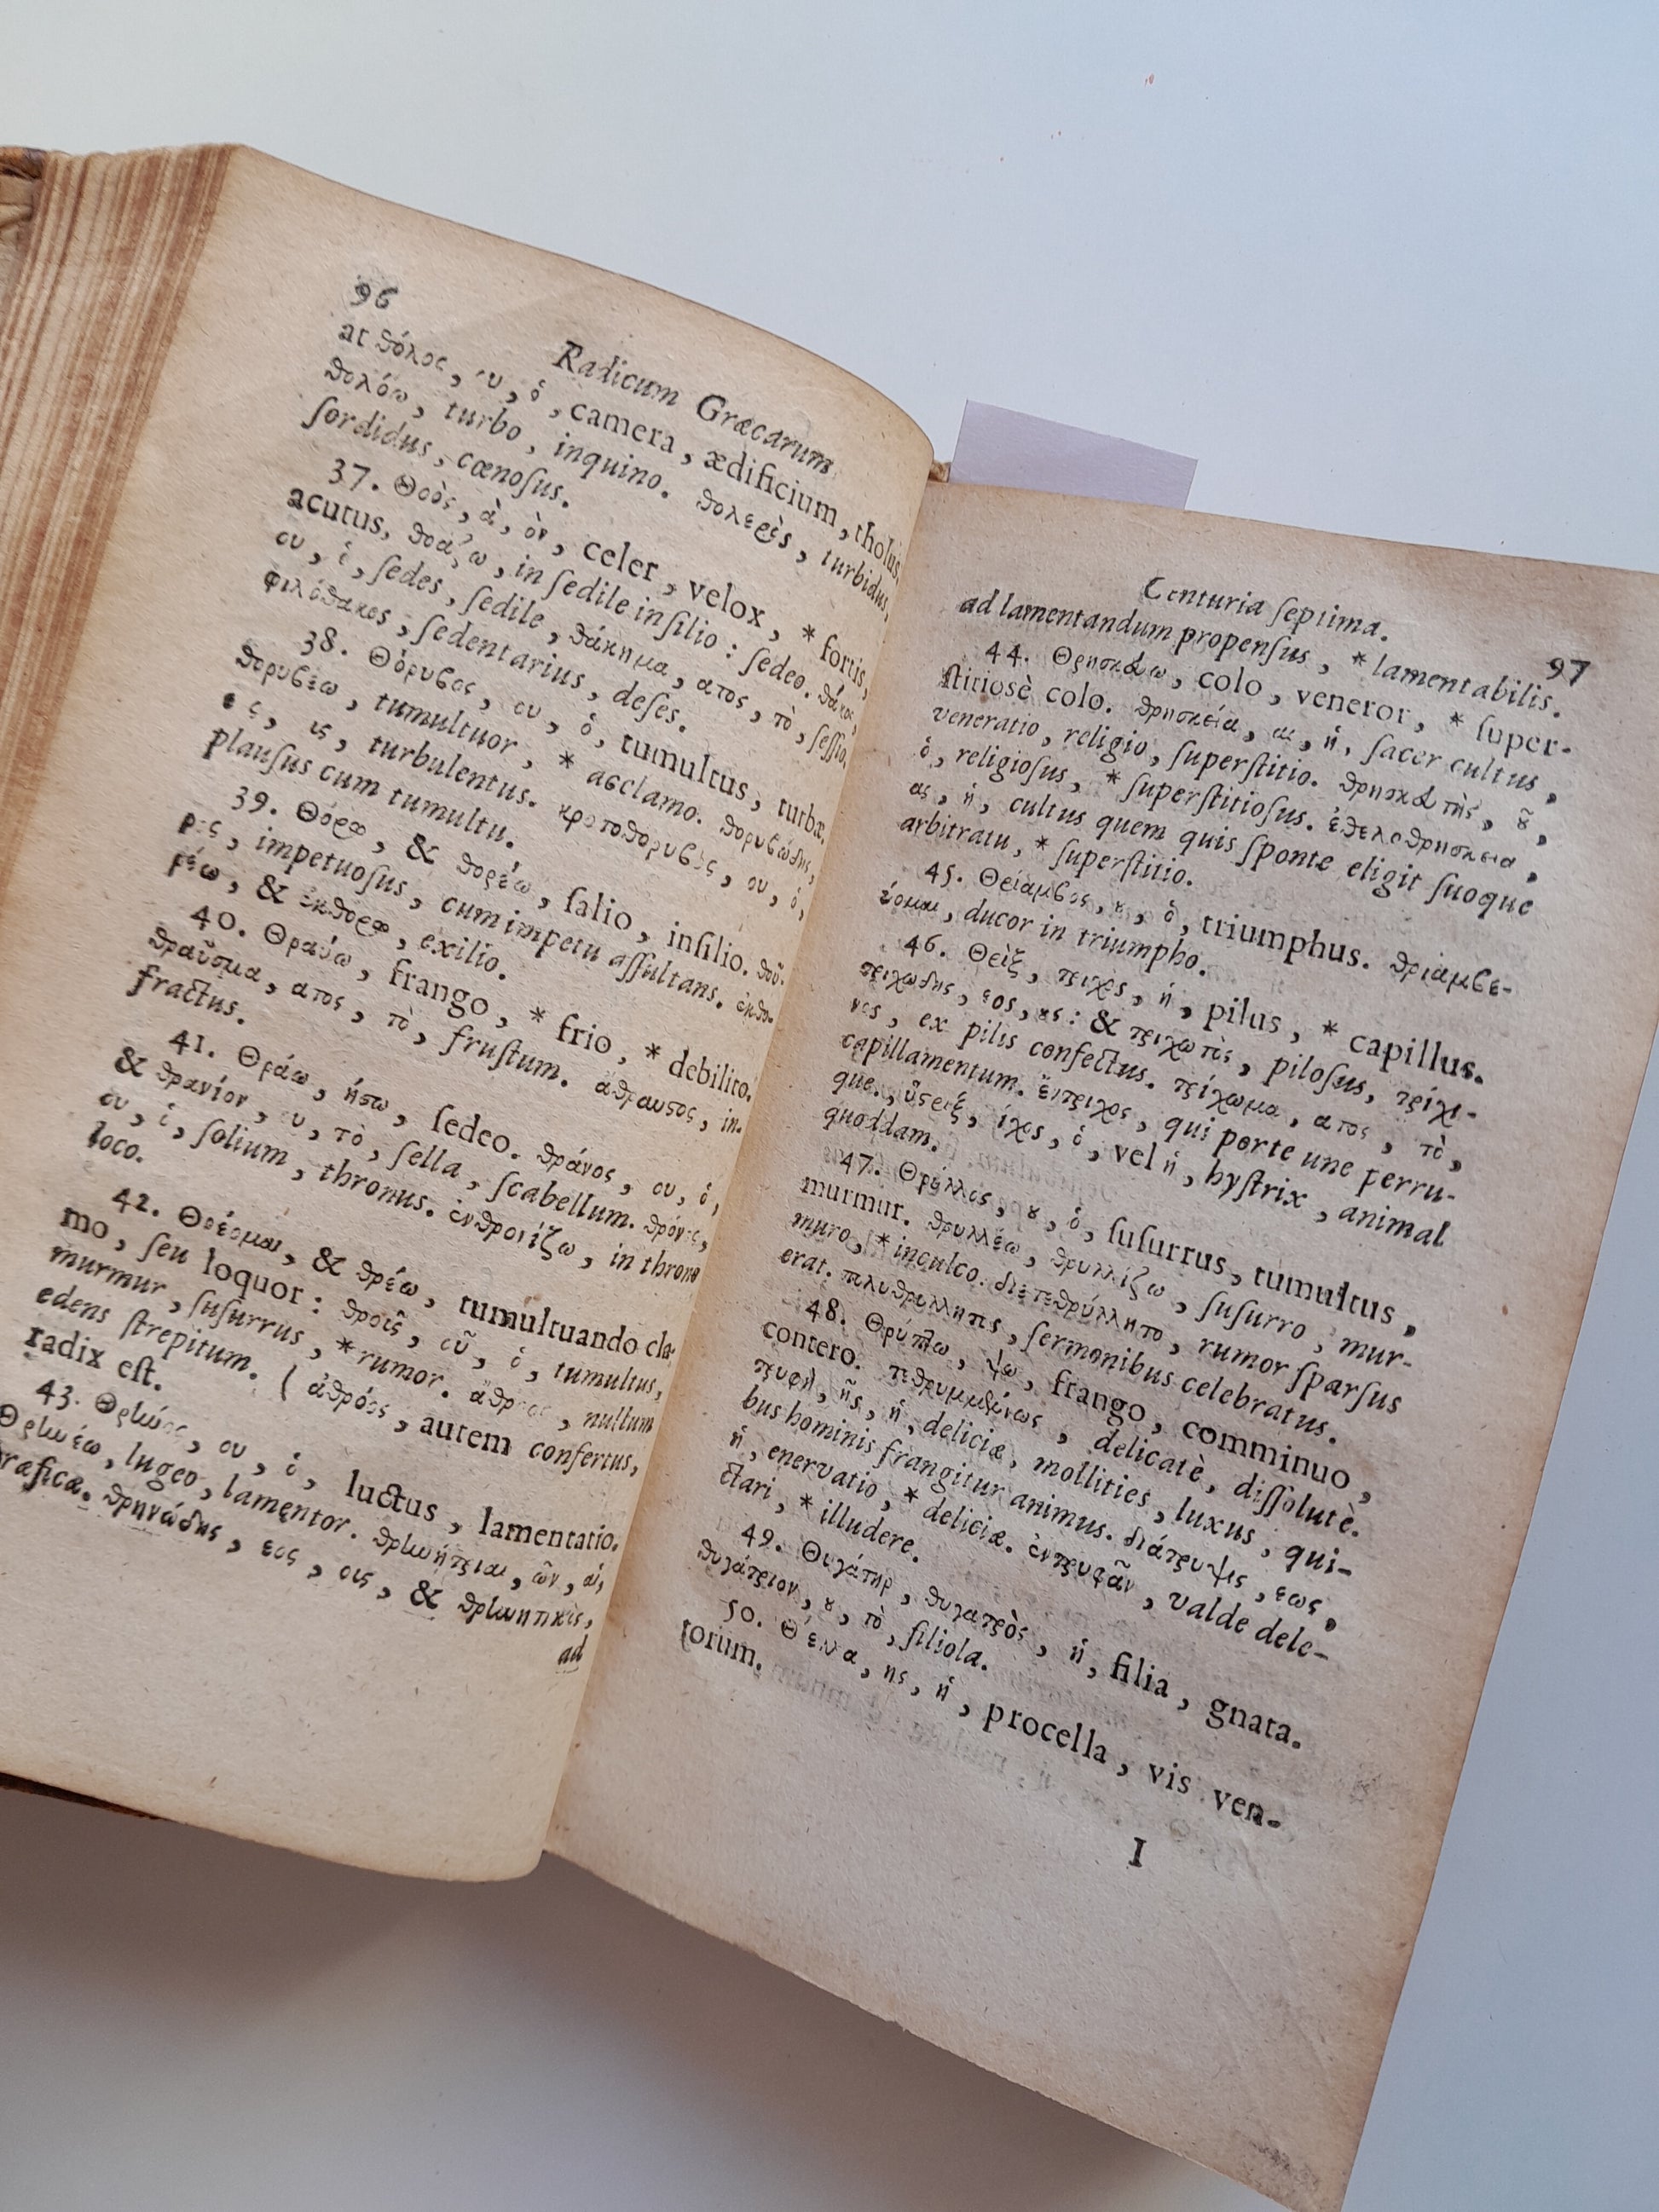 96
Radicum Græcarum
at θόλος, ου, ὁ, camera, ædificium, tholus,
θολόω, turbo, inquino. θολερὸς, turbidus,
ſordidus, cœnoſus.
37. Θοὸς, ὰ, ὸν, celer, velox, * fortis,
acutus, θοάζω, in ſedile inſilio: ſedeo. θᾶκος,
ου, ὁ, ſedes, ſedile, θάκημα, ατος, τὸ, ſeſſio,
φιλόθακος, ſedentarius, deſes.
38. Θόρυβος, ου, ὁ, tumultus, turbæ.
θορυβέω, tumultuor, * acclamo. θορυβώδης,
εος, ȣς, turbulentus. κροτοθορυβος, ου, ὁ,
plauſus cum tumultu.
39. Θόρω, & θορέω, ſalio, inſilio. θοῦ-
ρος, impetuoſus, cum impetu aſſultans. ἐκθο-
ρέω, & ἐκθόρω, exilio.
40. Θραύω, frango, * frio, * debilito.
θραῦσμα, ατος, τὸ, fruſtum. ἄθραυστος, in-
fractus.
41. Θράω, ήσω, ſedeo. θράνος, ου, ὁ,
& θρανίον, ου, τὸ, ſella, ſcabellum. θρόνος,
ου, ὁ, ſolium, thronus. ἐνθρονίζω, in throno
loco.
42. Θρέομαι, & θρέω, tumultuando cla-
mo, ſeu loquor: θροῦς, οῦ, ὁ, tumultus,
murmur, ſuſurrus, * rumor. ἄθροος, nullum
edens ſtrepitum. ( ἀθρόος, autem confertus,
radix eſt.
43. Θρῆνος, ου, ὁ, luctus, lamentatio.
Θρηνέω, lugeo, lamentor. θρηνήτριαι, ῶν, αἱ,
præficæ. θρηνώδης, εος, ους, & θρηνητικὸς,
ad
Centuria ſeptima.
97
ad lamentandum propenſus, * lamentabilis.
44. Θρησκεύω, colo, veneror, * ſuper-
ſtitiosè colo. θρησκεία, ας, ἡ, ſacer cultus,
veneratio, religio, ſuperſtitio. θρησκευτὴς, ȣ͂,
ὁ, religioſus, * ſuperſtitioſus. ἐθελοθρησκεια,
ας, ἡ, cultus quem quis ſponte eligit ſuoque
arbitratu, * ſuperſtitio.
45. Θρίαμβος, ȣ, ὁ, triumphus. θριαμβε-
ύομαι, ducor in triumpho.
46. Θρὶξ, τριχὸς, ἡ, pilus, * capillus.
τριχώδης, εος, ȣς: & τριχωτὸς, piloſus, τρίχι-
νος, ex pilis confectus. τρίχωμα, ατος, τὸ,
capillamentum. ἔντριχος, qui porte une perru-
que. ὕστριξ, ιχος, ὁ, vel ἡ, hyſtrix, animal
quoddam.
47. Θρύλλος, ȣ, ὁ, ſuſurrus, tumultus,
murmur. θρυλλέω, θρυλλίζω, ſuſurro, mur-
muro, * inculco. διετεθρύλλητο, rumor ſparſus
erat. πολυθρύλλητος, ſermonibus celebratus.
48. Θρύπτω, ψω, frango, comminuo,
contero. τεθρυμμένως, delicatè, diſſolutè.
τρυφὴ, ῆς, ἡ, deliciæ, mollities, luxus, qui-
bus hominis frangitur animus. διάτρυψις, εως,
ἡ, enervatio, * deliciæ. ἐντρυφᾶν, valde dele-
ctari, * illudere.
49. Θυγάτηρ, θυγατρὸς, ἡ, filia, gnata.
θυγάτριον, ȣ, τὸ, filiola.
50. Θύελλα, ης, ἡ, procella, vis ven-
torum.
I